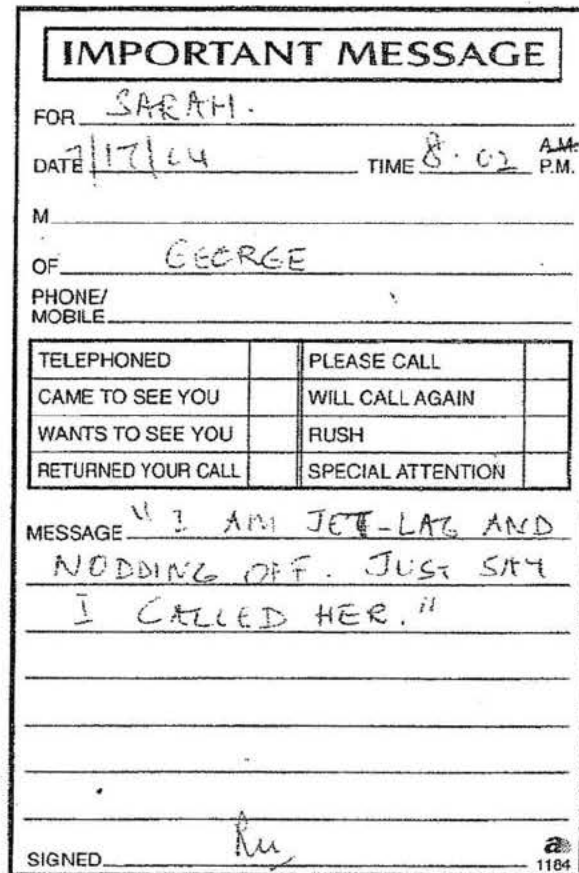 IMPORTANT MESSAGE
FOR SARAH.
DATE 7/17/04 TIME 8.02 A.M. P.M.
M
OF GEORGE
PHONE/
MOBILE
TELEPHONED PLEASE CALL
CAME TO SEE YOU WILL CALL AGAIN
WANTS TO SEE YOU RUSH
RETURNED YOUR CALL SPECIAL ATTENTION
MESSAGE "I AM JET-LAG AND
NODDING OFF. JUST SAY
I CALLED HER."
SIGNED
1184